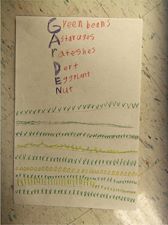 Green beans
Asparagas
Rateshes
Dert
Eggplant
Nut